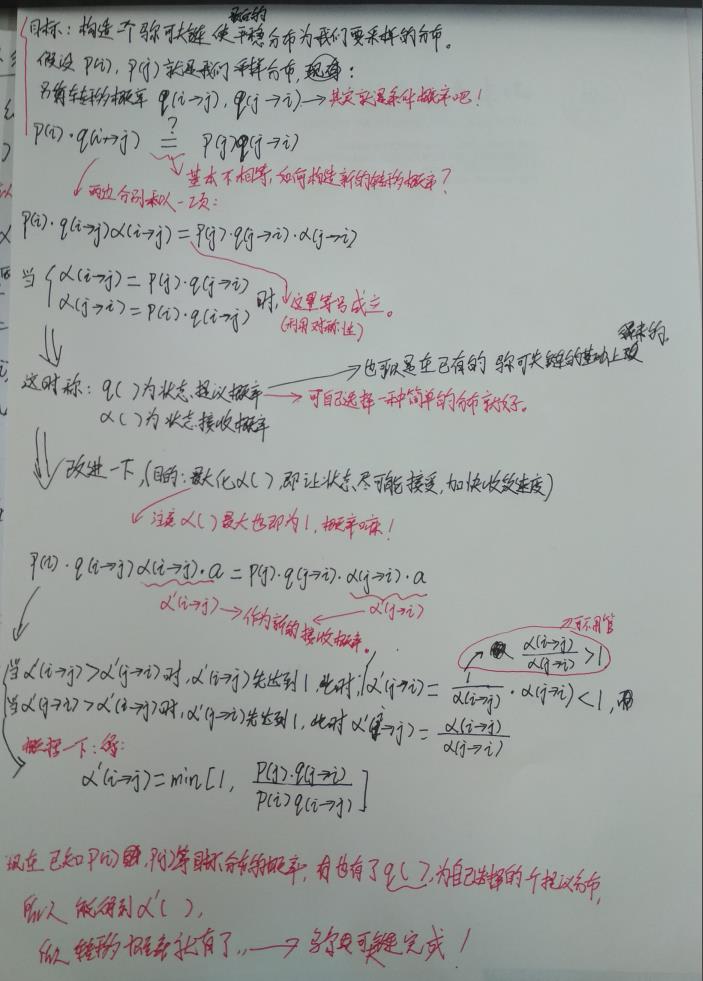 最后的
目标：构造一个马尔可夫链使平稳分布为我们要采样的分布。
假设 P(i), P(j) 就是我们采样分布，现有：
另有转移概率 q(i→j), q(j→i) → 其实就是条件概率吧！
P(i)·q(i→j) =? P(j)q(j→i)
基本不相等，如何构造新的转移概率？
两边分别乘以一项：
P(i)·q(i→j)α(i→j) = P(j)·q(j→i)·α(j→i)
当 { α(i→j) = P(j)·q(j→i)
α(j→i) = P(i)·q(i→j) 时，这里等号成立。
(利用对称性)
来的。
这时称：q( )为状态提议概率 → 也可以是在已有的马尔可夫链的基础上改
α( )为状态接收概率 → 可自己选择一种简单的分布就好。
改进一下，(目的：最大化α( )，即让状态尽可能接受，加快收敛速度)
注意α( )最大也即为1，概率嘛！
P(i)·q(i→j)α(i→j)·a = P(j)·q(j→i)·α(j→i)·a
α'(i→j) → 作为新的接收概率。 ← α'(j→i)
可不用管
α(i→j)/α(j→i) > 1
当α'(i→j) > α'(j→i)时，α'(i→j)先达到1，此时，α'(j→i) = 1/α(i→j) · α(j→i) < 1，
当α'(j→i) > α'(i→j)时，α'(j→i)先达到1，此时α'(i→j) = α(i→j)/α(j→i)
概括一下：得：
α'(i→j) = min[1, P(j)·q(j→i)/P(i)q(i→j)]
现在已知P(i), P(j)等目标分布的概率，有也有了q( )，为自己选择的一个提议分布，
所以能得到α'( )，
所以转移概率就有了,,→ 马尔可夫链完成！